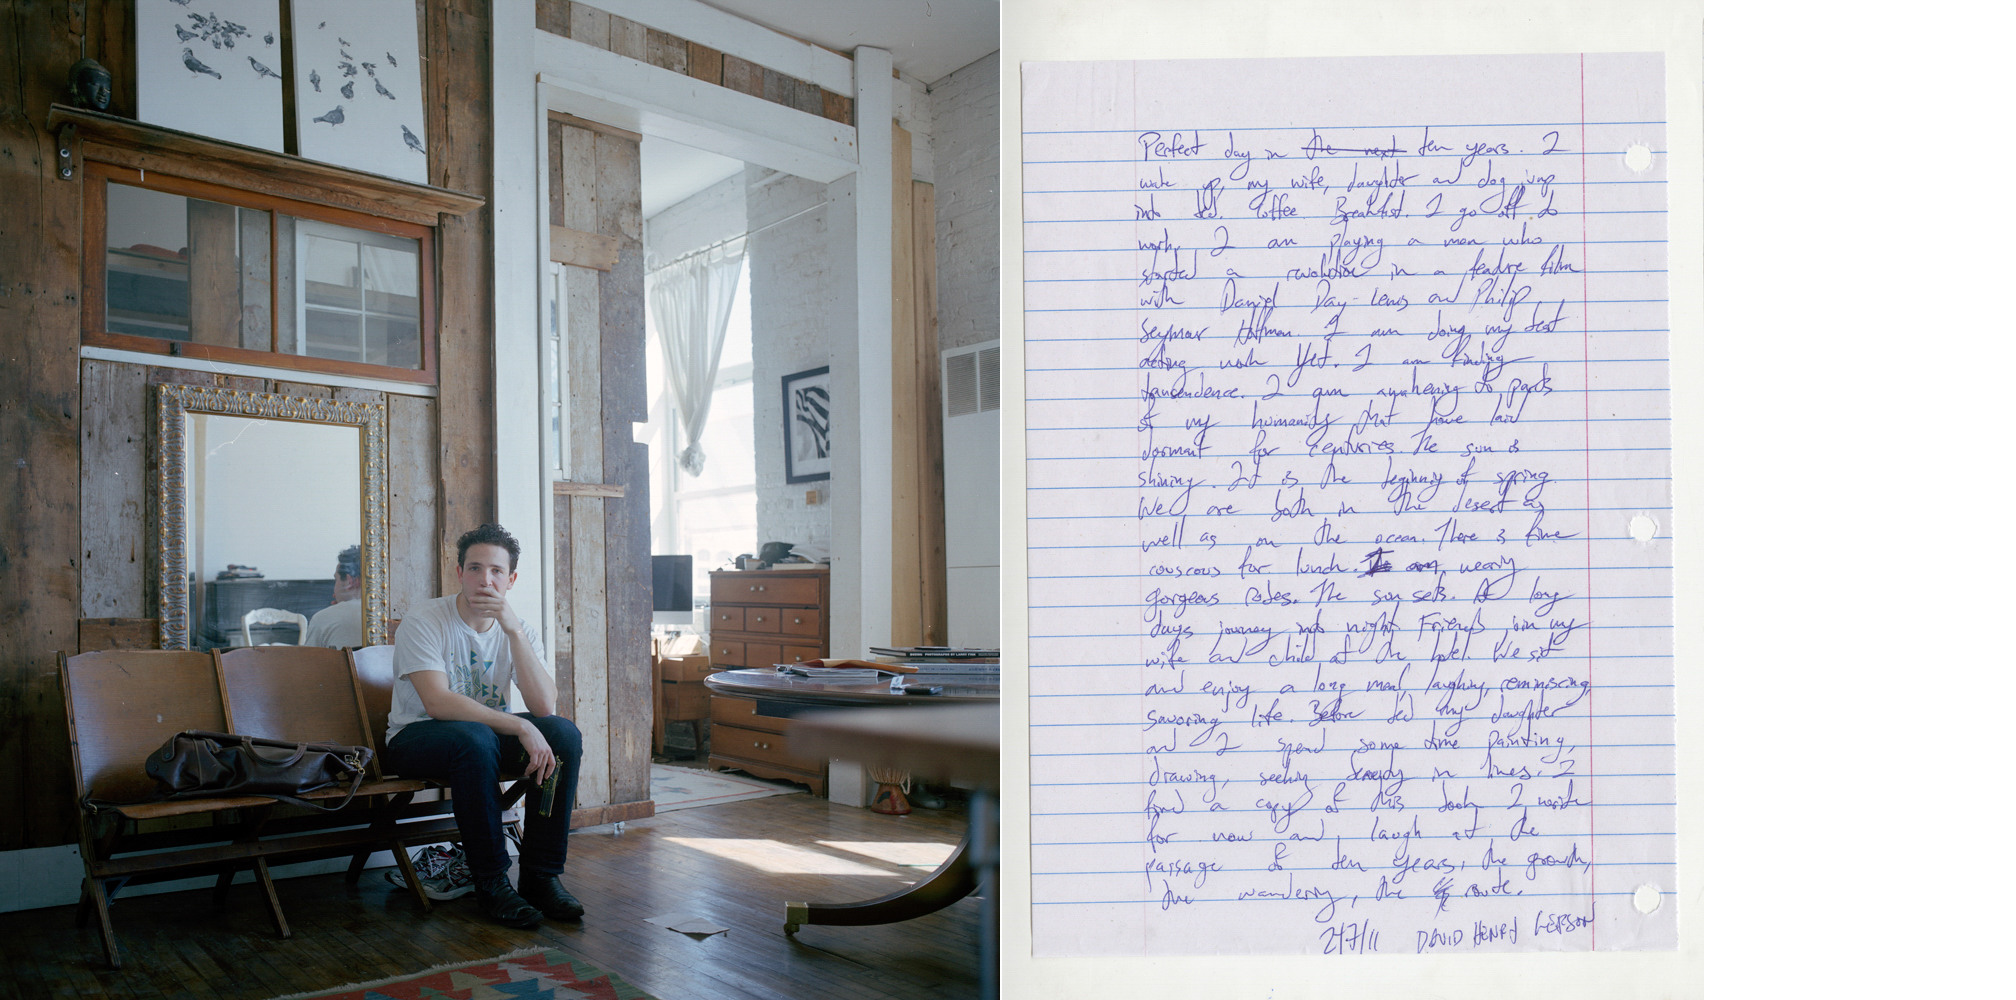 Perfect day in the next ten years. I
wake up, my wife, daughter and dog jump
into bed. Coffee. Breakfast. I go off to
work. I am playing a man who
started a revolution in a feature film
with Daniel Day-Lewis and Philip
Seymour Hoffman. I am doing my best
acting work yet. I am finding
transendence. I am awakening to parts
of my humanity that have laid
dormant for centuries. The sun is
shining. It is the beginning of spring.
We are both in the desert as
well as on the ocean. There is fine
couscous for lunch. wearing
gorgeous robes. The sun sets. A long
days journey into night. Friends join my
wife and child at the hotel. We sit
and enjoy a long meal, laughing, reminiscing,
savoring life. Before bed my daughter
and I spend some time painting,
drawing, seeking beauty in lines. I
find a copy of this book I write
for now and laugh at the
passage of ten years, the growth,
the wandering, the route.
2/7/11 DAVID HENRY GERSON